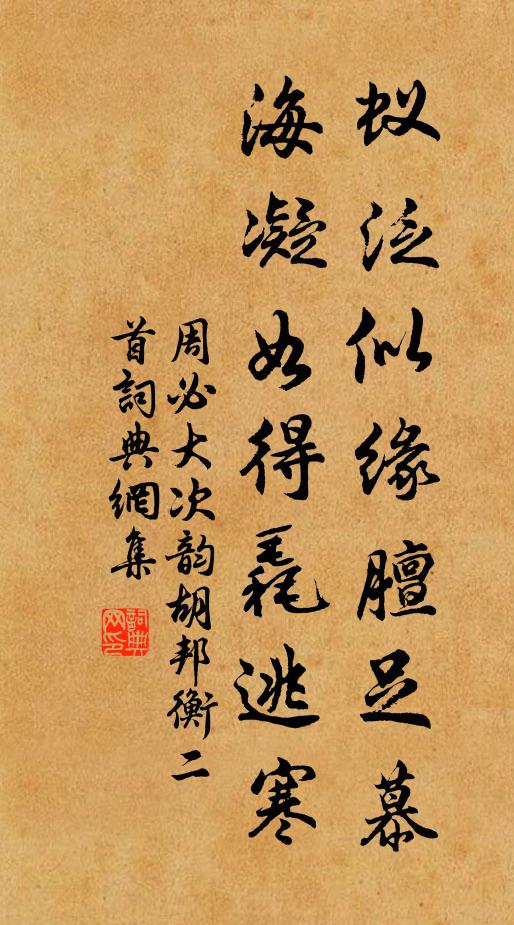 蚁泛似缘膻足慕
海凝如得毳逃寒
周必大次韵胡邦衡二
首詞典網集
詞典
网印